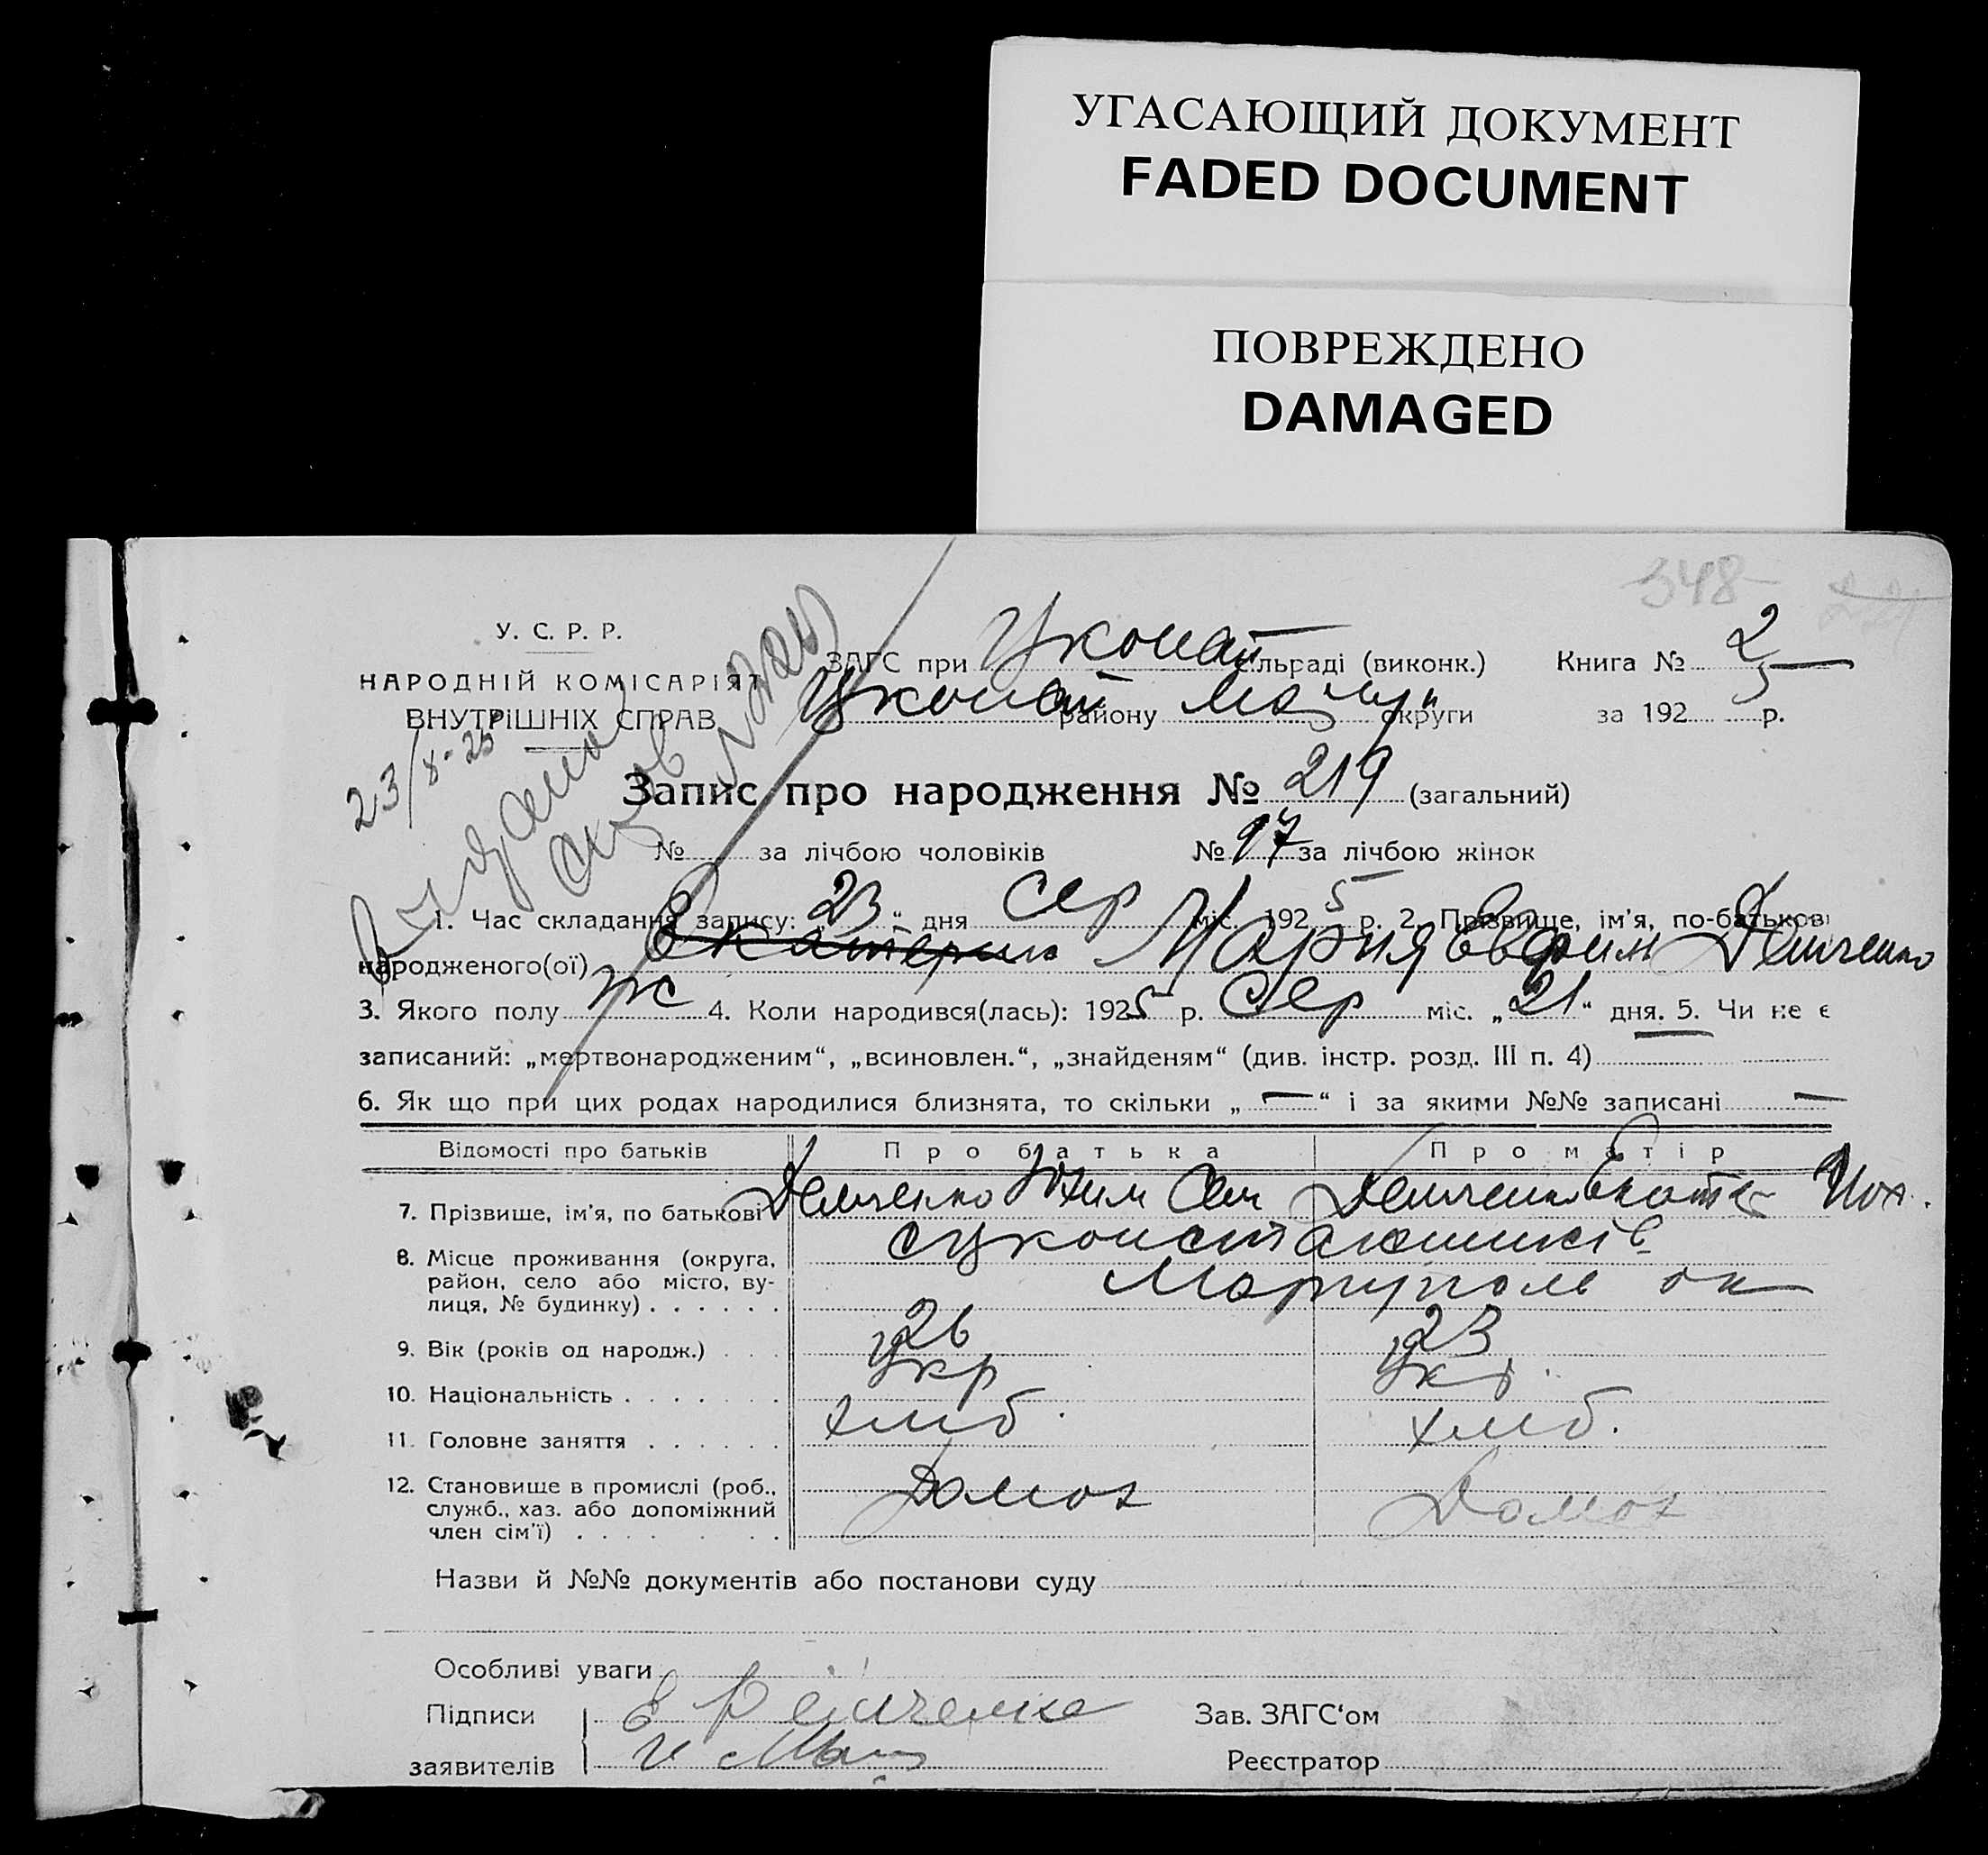 УГАСАЮЩИЙ ДОКУМЕНТ
FADED DOCUMENT
ПОВРЕЖДЕНО
DAMAGED
348
У. С. Р. Р.
НАРОДНІЙ КОМІСАРІЯТ
ВНУТРІШНІХ СПРАВ
ЗАГС при сільраді (виконк.) Книга № 2
району округи за 192 5 р.
23/8-25
Запис про народження № 219 (загальний)
№ за лічбою чоловіків № 97 за лічбою жінок
1. Час складання запису: „23“ дня сер міс. 1925 р. 2. Прізвище, ім'я, по-батькові
народженого(ої) Екатерин Мария Евфим Демченко
3. Якого полу ж 4. Коли народився(лась): 1925 р. Сер міс. „21“ дня. 5. Чи не є
записаний: „мертвонародженим“, „всиновлен.“, „знайденям“ (див. інстр. розд. III п. 4)
6. Як що при цих родах народилися близнята, то скільки „—“ і за якими №№ записані —
Відомості про батьків Про батька Про матір
7. Прізвище, ім'я, по батькові Демченко Юхим Сем Демченко Екате
8. Місце проживання (округа, район, село або місто, вулиця, № будинку)
Мариуполь ок
9. Вік (років од народж.) 26 23
10. Національність Укр Укр.
11. Головне заняття хліб. хліб.
12. Становище в промислі (роб., служб., хаз. або допоміжний член сім'ї) Домох Домох
Назви й №№ документів або постанови суду
Особливі уваги
Підписи заявителів Е Демченко
Зав. ЗАГС'ом
Реєстратор